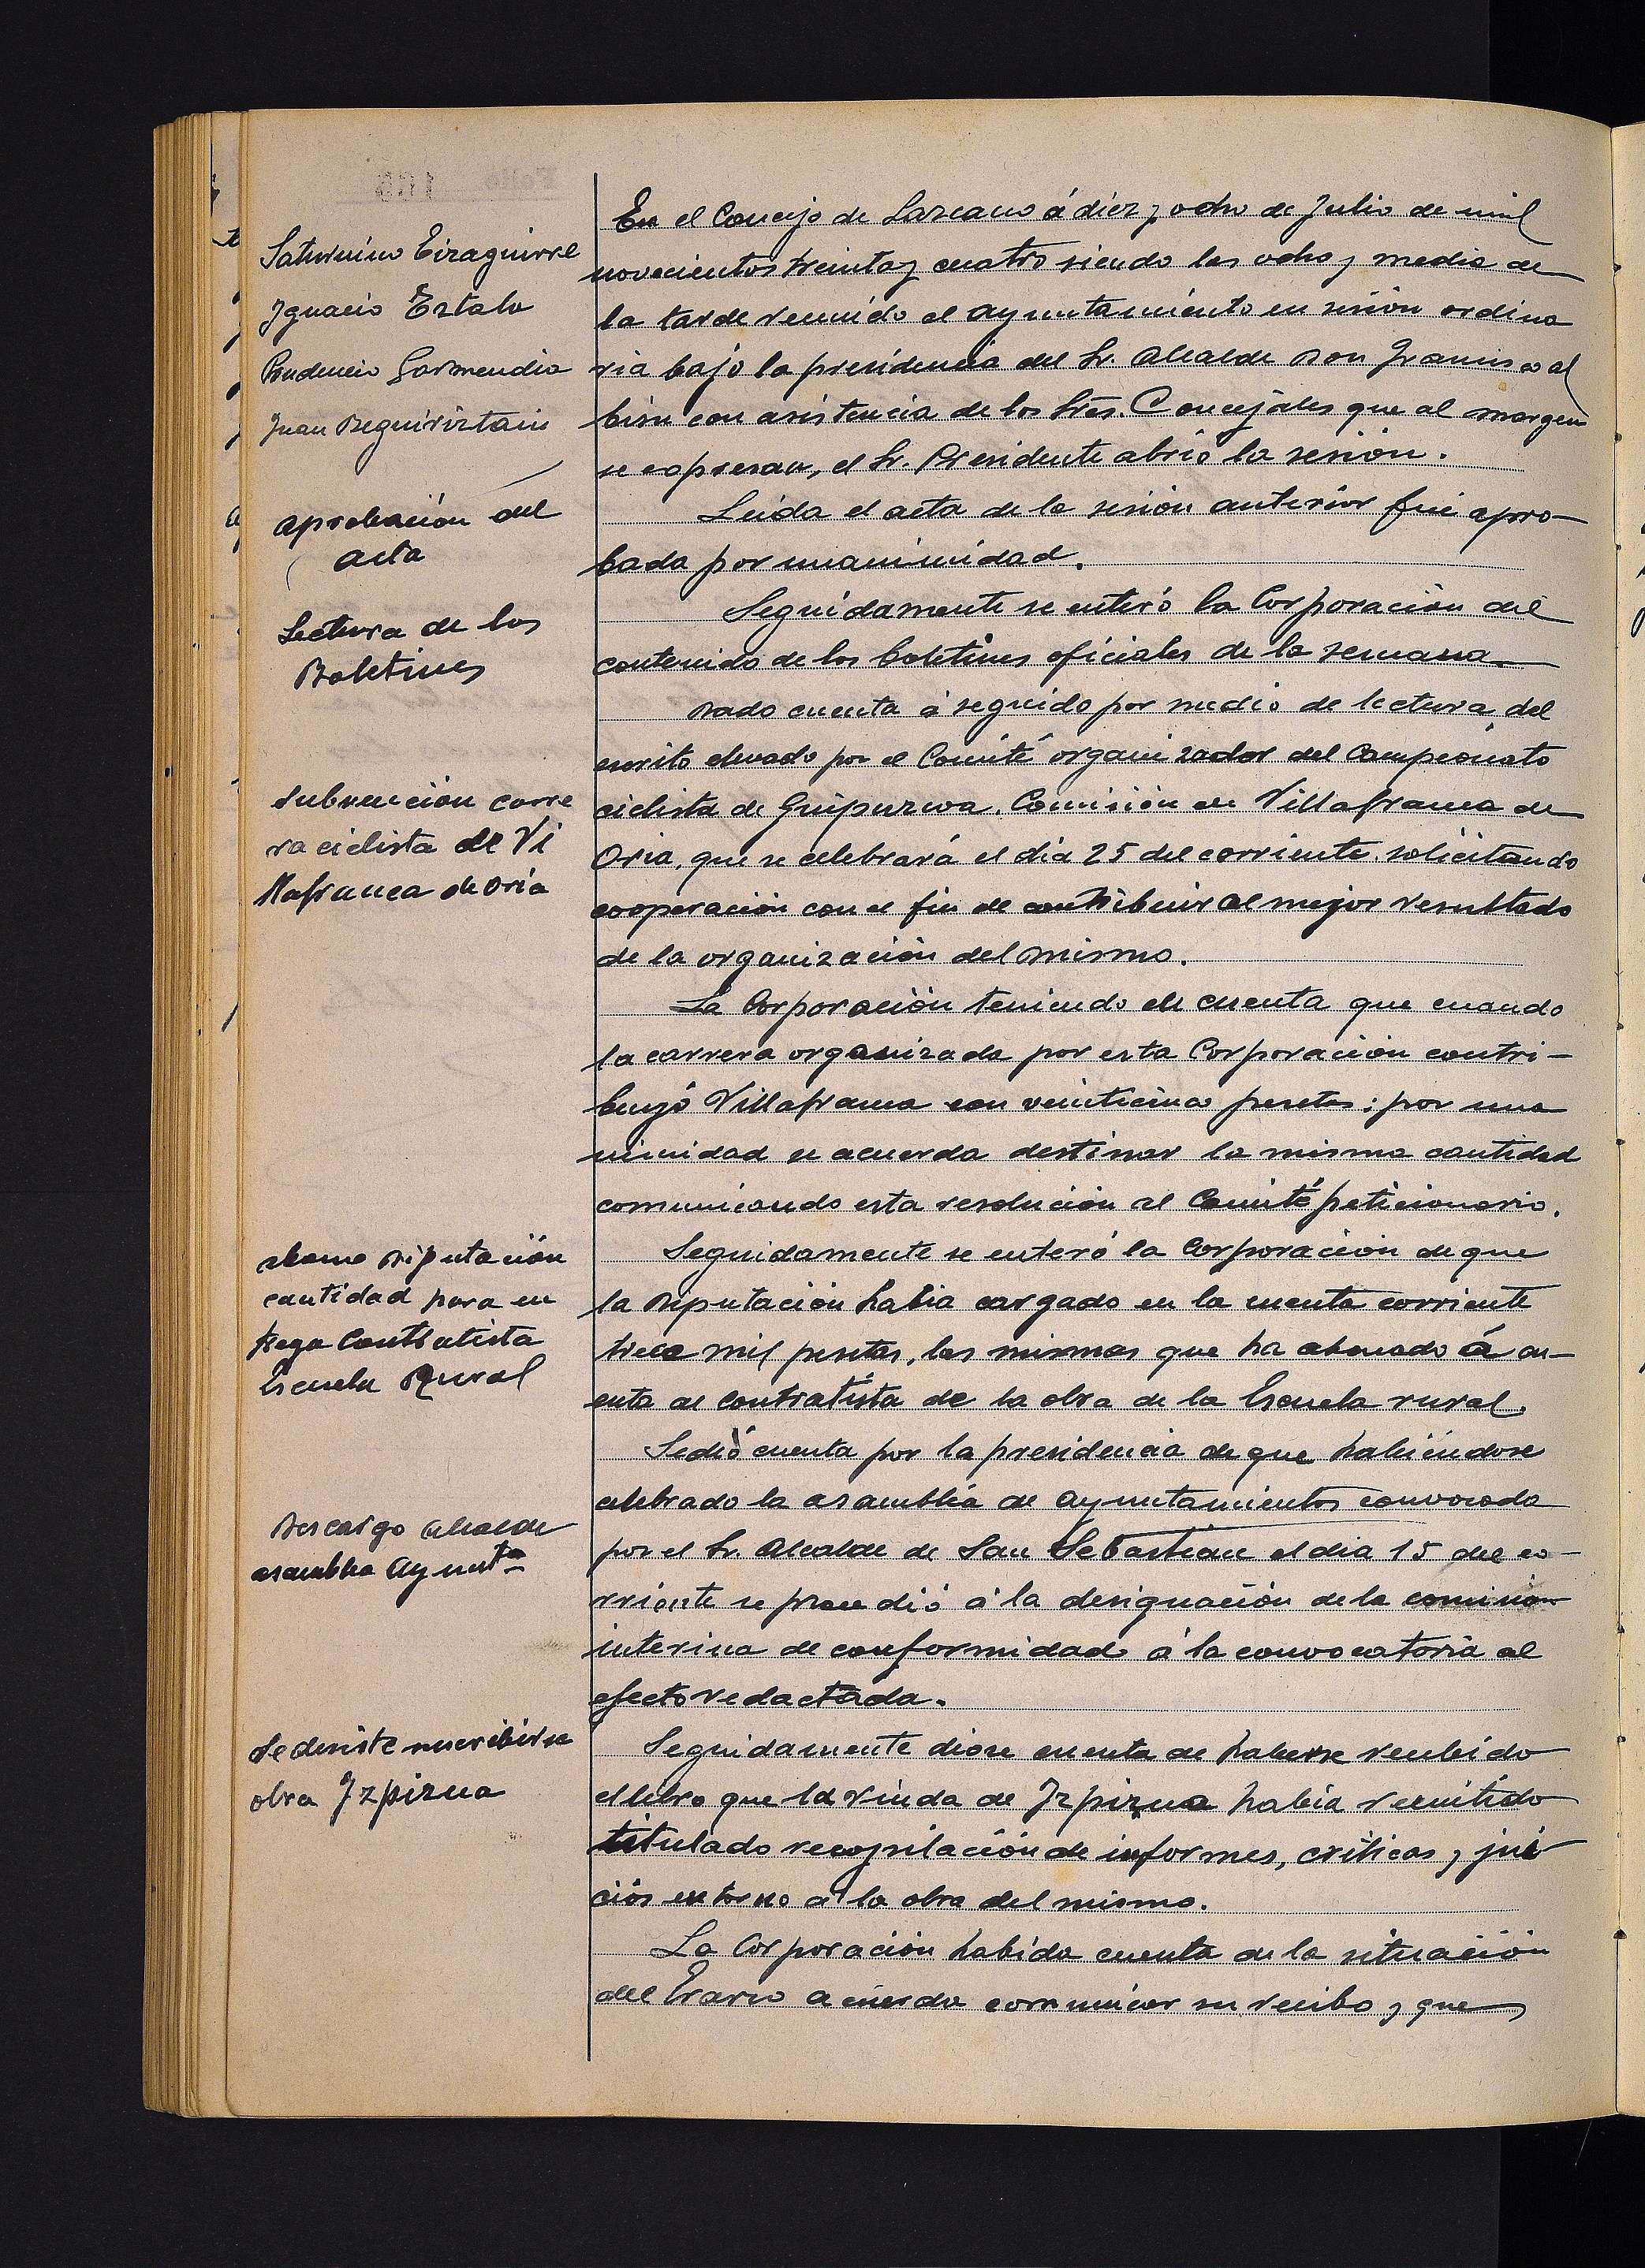 Saturnino Eizaguirre
Ignacio Estala
Prudencio Garmendia
Juan Beguiristain
aprobación del
acta
Lectura de los
Boletines
Subvención carre
ra ciclista de Vi
llafranca de Oria
abono Diputación
cantidad para en
trega Contratista
Escuela Rural
Descargo Alcalde
asamblea Ayunta
Se desiste suscribirse
obra Izpizua
En el Concejo de Lazcano á diez y ocho de Julio de mil
novecientos treinta y cuatro siendo las ocho y media de
la tarde reunido el Ayuntamiento en sesión ordina
ria bajo la presidencia del Sr. Alcalde Don Francisco al
bisu con asistencia de los Sres. Concejales que al margen
se expresan, el Sr. Presidente abrió la sesión.
Leida el acta de la sesión anterior fué apro-
bada por unanimidad.
Seguidamente se enteró la Corporación del
contenido de los boletines oficiales de la semana
Dado cuenta á seguido por medio de lectura del
escrito elevado por el Comité organizador del Campeonato
ciclista de Guipuzcoa. Comisión en Villafranca de
Oria, que se celebrará el dia 25 del corriente solicitando
cooperación con el fin de contribuir al mejor resultado
de la organización del mismo.
La Corporación teniendo en cuenta que cuando
la carrera organizada por esta Corporación contri-
buyó Villafranca con veinticinco pesetas; por una
nimidad se acuerda destinar la misma cantidad
comunicando esta resolución al Comité peticionario.
Seguidamente se enteró la Corporación de que
la Diputación habia cargado en la cuenta corriente
trece mil pesetas, las mismas que ha abonado á cu-
enta al contratista de la obra de la Escuela rural.
Se dió cuenta por la presidencia de que habiéndose
celebrado la asamblea de Ayuntamientos convocada
por el Sr. Alcalde de San Sebastian el dia 15 del co-
rriente se procedió á la designación de la comisión
interina de conformidad á la convocatoria al
efecto redactada.
Seguidamente diose cuenta de haberse recibido
el libro que la viuda de Izpizua habia remitido
titulado recopilación de informes, criticas y jui
cios en torno a la obra del mismo.
La Corporación habida cuenta de la situación
del Erario acuerda comunicar su recibo y que